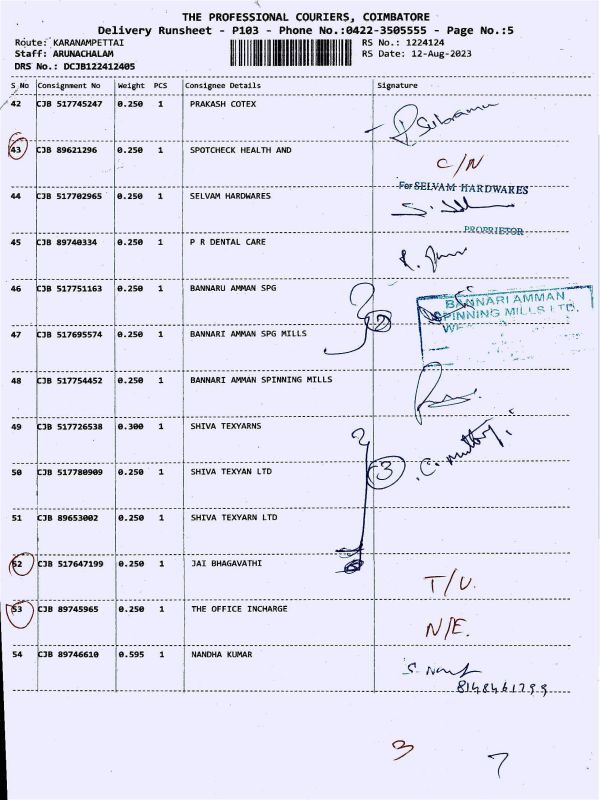 THE PROFESSIONAL COURIERS, COIMBATORE
Delivery Runsheet - P103 - Phone No.:0422-3505555 - Page No.:5
Route: KARANAMPETTAI RS No.: 1224124
Staff: ARUNACHALAM RS Date: 12-Aug-2023
DRS No.: DCJB122412405
S No Consignment No Weight PCS Consignee Details Signature
42 CJB 517745247 0.250 1 PRAKASH COTEX
43 CJB 89621296 0.250 1 SPOTCHECK HEALTH AND C/N
For SELVAM HARDWARES
44 CJB 517702965 0.250 1 SELVAM HARDWARES
PROPRIETOR
45 CJB 89740334 0.250 1 P R DENTAL CARE
46 CJB 517751163 0.250 1 BANNARU AMMAN SPG
BANNARI AMMAN
SPINNING MILLS LTD.
47 CJB 517695574 0.250 1 BANNARI AMMAN SPG MILLS
48 CJB 517754452 0.250 1 BANNARI AMMAN SPINNING MILLS
49 CJB 517726538 0.300 1 SHIVA TEXYARNS
50 CJB 517780909 0.250 1 SHIVA TEXYAN LTD 3
51 CJB 89653002 0.250 1 SHIVA TEXYARN LTD
52 CJB 517647199 0.250 1 JAI BHAGAVATHI T/U.
53 CJB 89745965 0.250 1 THE OFFICE INCHARGE N/E.
54 CJB 89746610 0.595 1 NANDHA KUMAR
8148461799
3 7